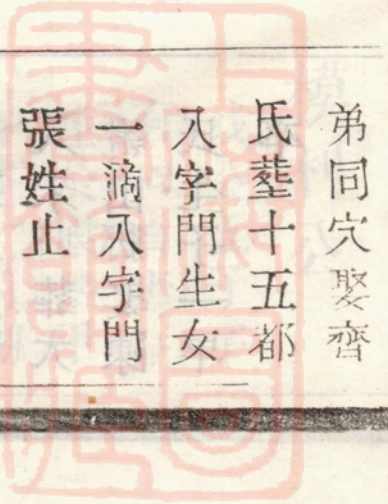 弟同穴娶齊
氏塟十五都
八字門生女
一滴八字門
張姓止